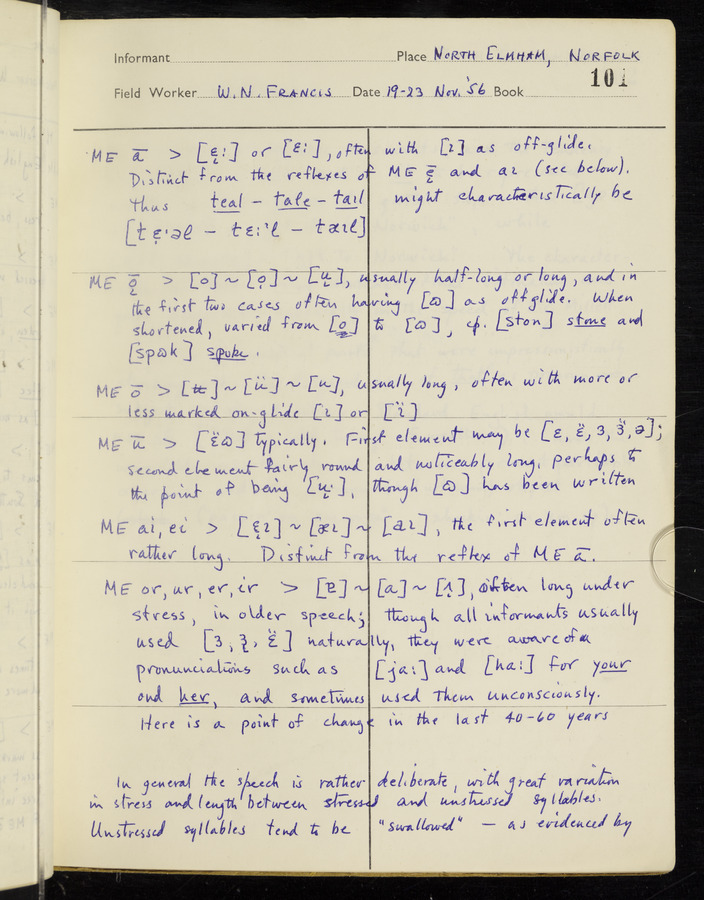 Informant Place NORTH ELMHAM, NORFOLK
101
Field Worker W. N. FRANCIS Date 19-23 Nov. '56 Book
ME ā > [ɛ̣:] or [ɛ:], often with [ɪ] as off-glide.
Distinct from the reflexes of ME ę̄ and ai (see below).
Thus teal – tale – tail might characteristically be
[tɛ̣·əl – tɛ:ˈl – tæɪl]
ME ǭ > [o] ~ [o̞] ~ [u̞], usually half-long or long, and in
the first two cases often having [ɷ] as offglide. When
shortened, varied from [o] to [ɷ], cf. [ston] stone and
[spɷk] spoke.
ME ō > [ʉ] ~ [ü] ~ [u], usually long, often with more or
less marked on-glide [ɪ] or [ï]
ME ū > [ɛ̈ɷ] typically. First element may be [ɛ, ɛ̈, ɜ, ɜ̈, ə];
second element fairly round and noticeably long, perhaps to
the point of being [u̞·], though [ɷ] has been written
ME ai, ei > [ɛ̞ɪ] ~ [æɪ] ~ [aɪ], the first element often
rather long. Distinct from the reflex of ME ā.
ME or, ur, er, ir > [ɐ] ~ [a] ~ [ʌ̞], often long under
stress, in older speech; though all informants usually
used [ɜ, ɜ̞, ɛ̈] naturally, they were aware of
pronunciations such as [ja:] and [ha:] for your
and her, and sometimes used them unconsciously.
Here is a point of change in the last 40-60 years
In general the speech is rather deliberate, with great variation
in stress and length between stressed and unstressed syllables.
Unstressed syllables tend to be "swallowed" – as evidenced by